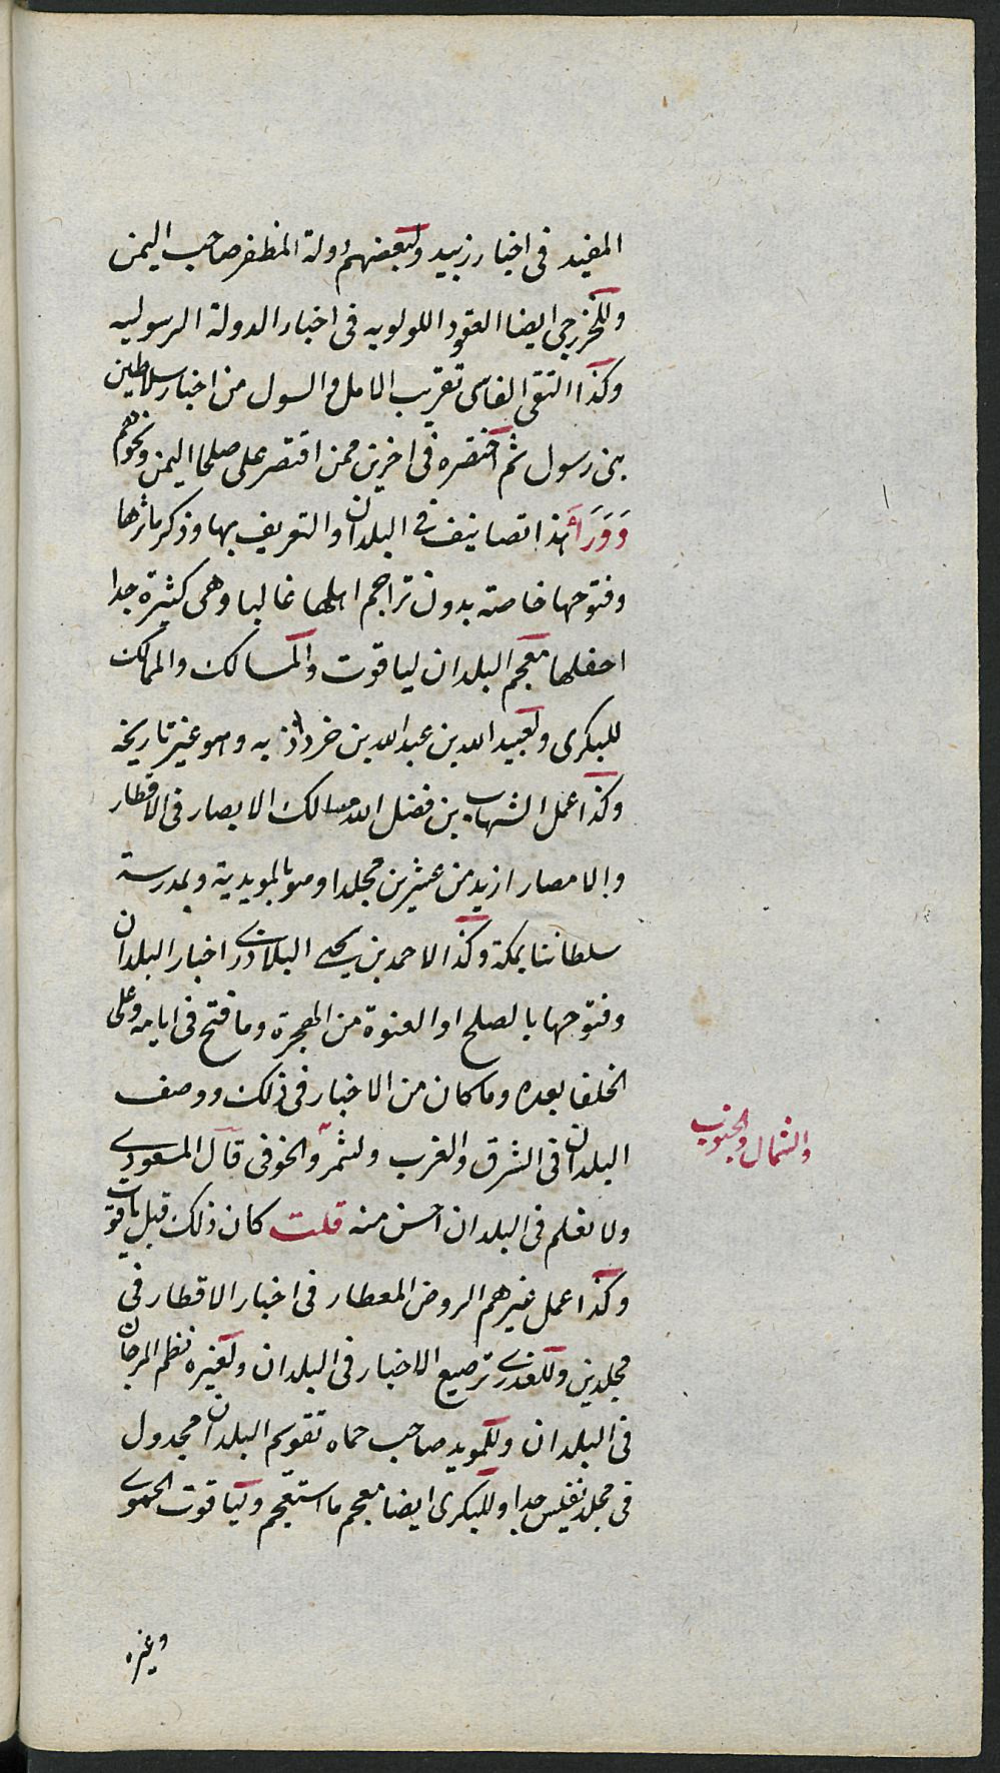 المفيد فى اخبار زبيد ولبعضهم دولة المظفر صاحب اليمن
وللخزرجى ايضا العقود اللولويه فى اخبار الدولة الرسوليه
وكذا التقى الفاسى تقريب الامل والسول من اخبار سلاطين
بنى رسول ثم اختصره فى اخرين ممن اقتصر على صلحا اليمن ونحوهم
وَوَرَأَ هذا تصانيف فى البلدان والتعريف بها وذكر ماثرها
وفتوحها خاصته بدون تراجم اهلها غالبا وهى كثيرة جدا
احفلها معجم البلدان لياقوت والمسالك والممالك
للبكرى ولعبيد الله بن عبد الله بن خرداذبه وهو غير تاريخه
وكذا عمل الشهاب بن فضل الله مسالك الابصار فى الاقطار
والامصار ازيد من عشرين مجلدا وهو بالمويدية وبمدرسة
سلطاننا بمكة وكذا لاحمد بن يحيى البلاذرى اخبار البلدان
وفتوحها بالصلح او العنوة من الهجرة وما فتح فى ايامه وعلى
الخلفا بعده وما كان من الاخبار فى ذلك ووصف
البلدان فى الشرق والغرب ولثمر والخوفى قال المسعودى
والشمال والجنوب
ولا نعلم فى البلدان احسن منه قلت كان ذلك قبل ياقوت
وكذا عمل غيرهم الروض المعطار فى اخبار الاقطار فى
مجلدين وللعذرى ترصيع الاخبار فى البلدان ولغيره نظم المرجان
فى البلدان وللمويد صاحب حماه تقويم البلدان مجدول
فى مجلد نفيس جدا وللبكرى ايضا معجم ما استعجم ولياقوت الحموى
وغيره